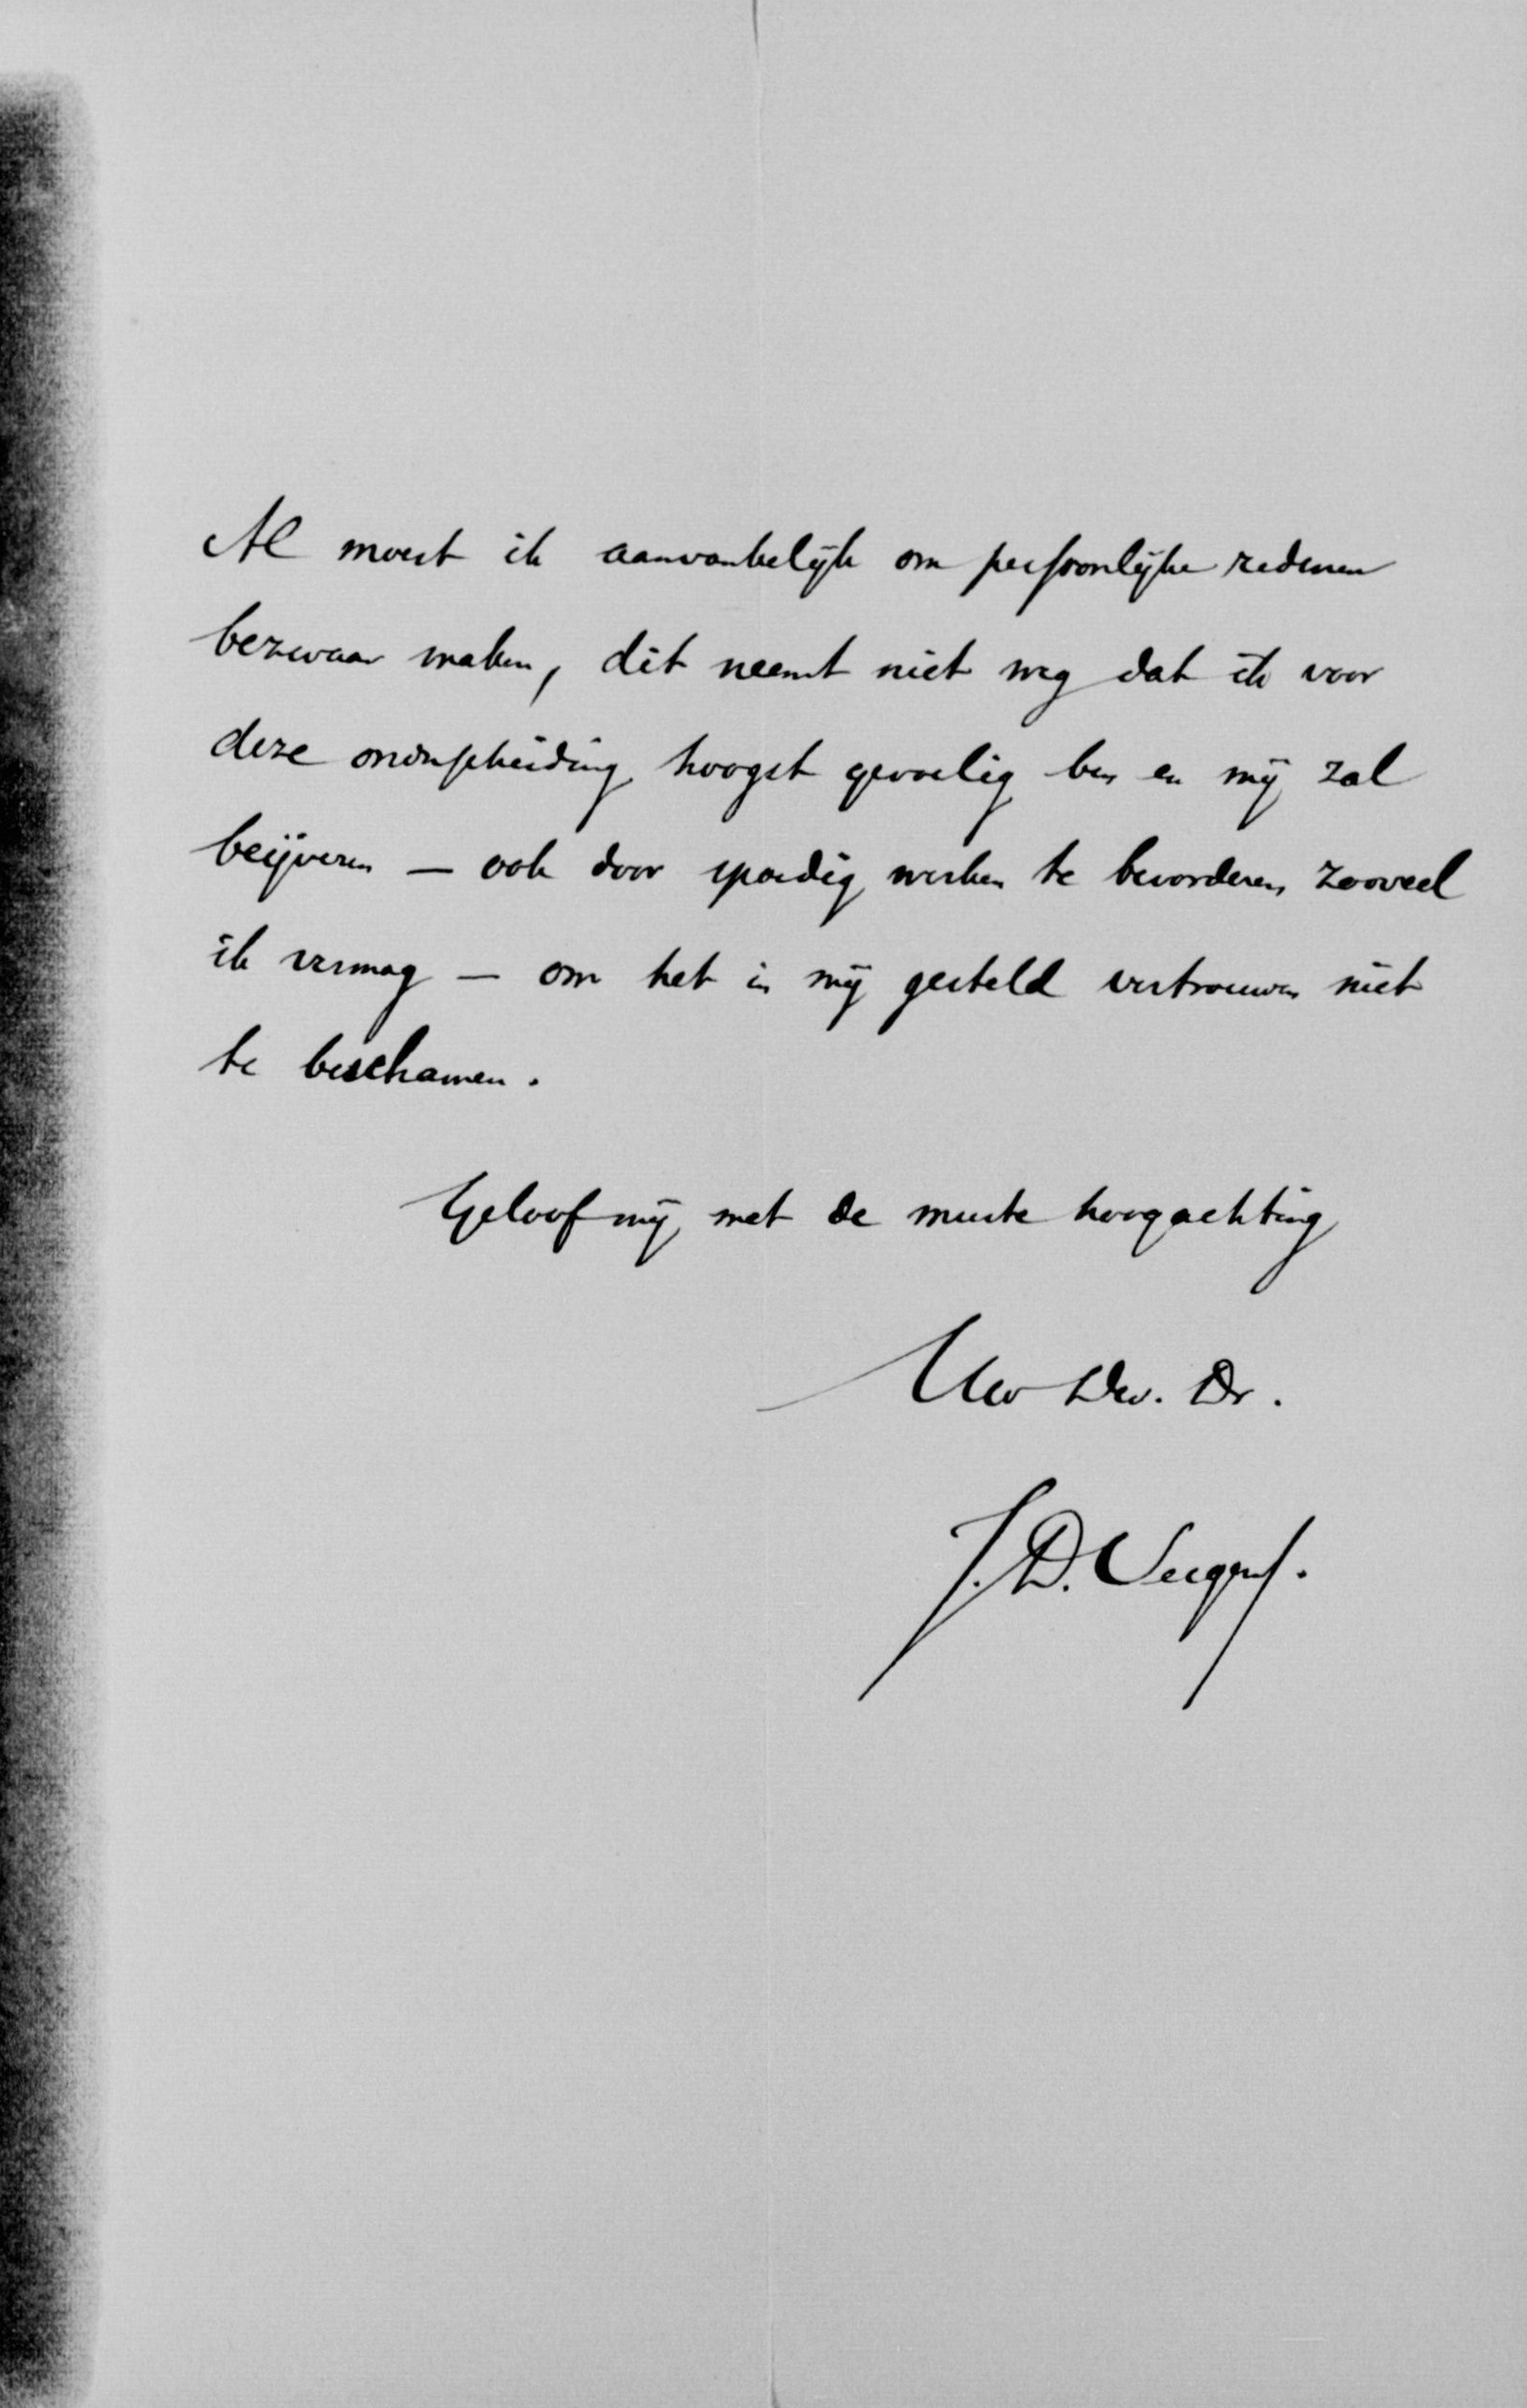 Al moest ik aanvankelijk om persoonlijke redenen
bezwaar maken, dit neemt niet weg dat ik voor
deze onderscheiding hoogst gevoelig ben en mij zal
beijveren — ook door spoedig werken te bevorderen zooveel
ik vermag — om het in mij gesteld vertrouwen niet
te beschamen.
Geloof mij, met de meeste hoogachting
Uw Dw. Dr.
J. D. Veegens.